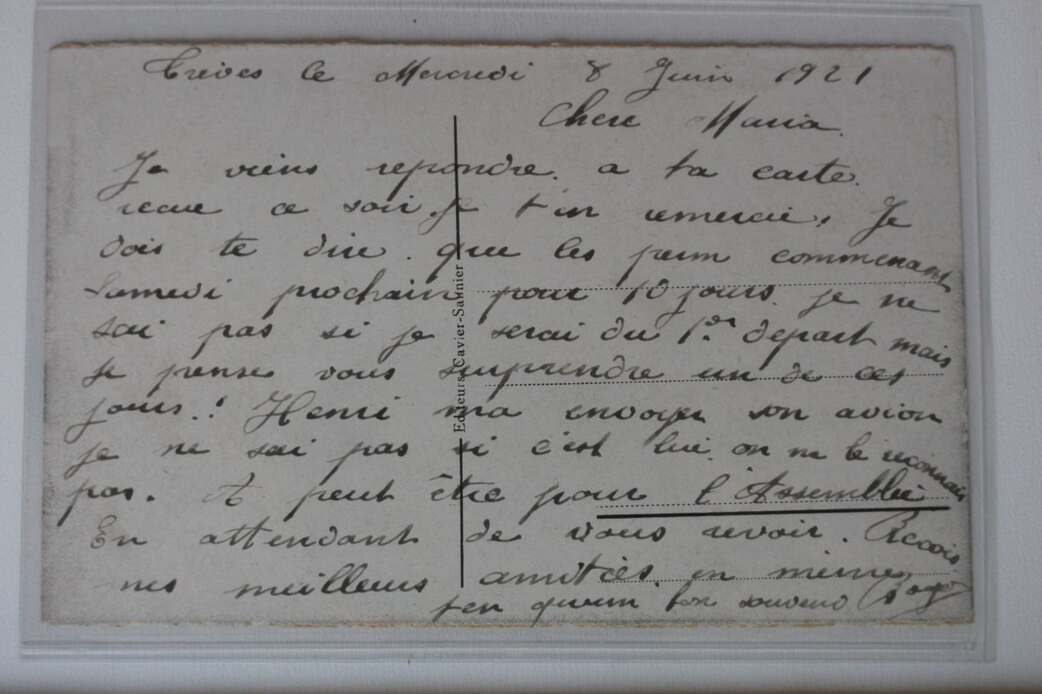 Trèves le Mercredi 8 Juin 1921
Chere Maria.
Je viens repondre. a ta carte.
recue ce soir. Je t'en remercie. Je
dois te dire. que les perm commenant
Samedi prochain pour 10 jours. je ne
sai pas si je serai du 1er depart mais
je pense vous surprendre un de ces
jours.! Henri ma envoyer son avion
je ne sai pas si c'est lui. on ne le reconnais
pas. A peut être pour l'Assemblée
En attendant de vous revoir. Recois
mes meilleurs amitiés. en même
temps qu'un bon souvenir
Editeurs Cavier-Saunier